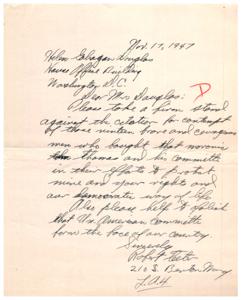 Nov. 17, 1947
Helen Gahagan Douglas
House Office Building
Washington D.C.
D
Dear Mrs Douglas:
Please take a firm stand
against the citation for contempt
of those nineteen brave and courageous
men who bought that moronic
Thomas and his committee
in their efforts to protect
mine and your rights and
our democratic way of life
Also please help to abolish
that Un American Committee
form the face of our country
Sincerely
Robert
210 S.
L.A. 4